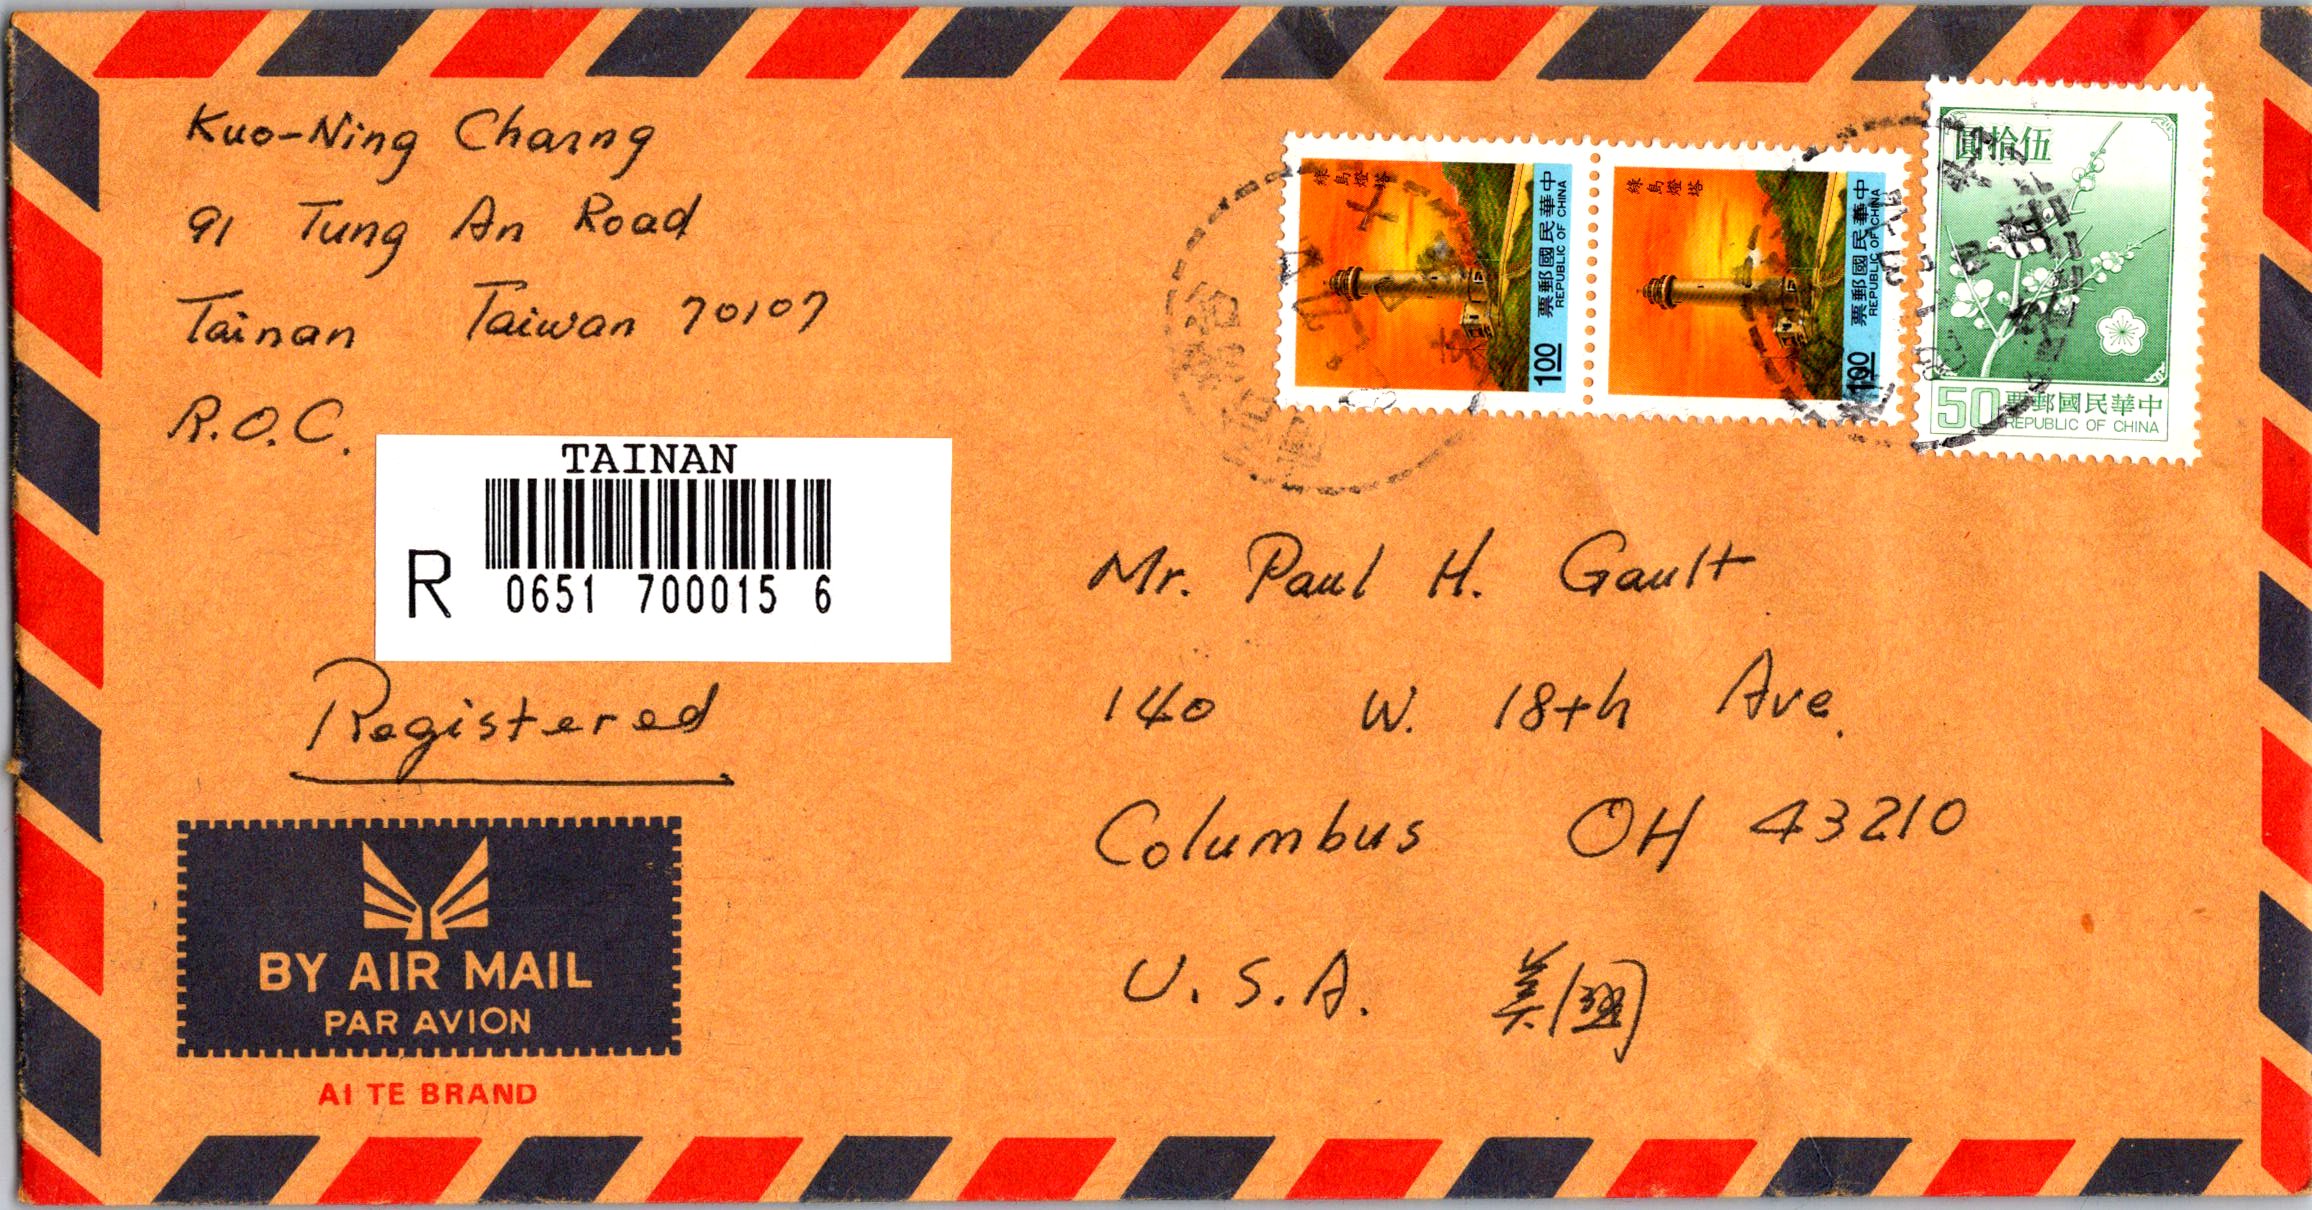 Kuo-Ning Charng
91 Tung An Road
Tainan Taiwan 70107
R.O.C.
TAINAN
R 0651 700015 6
Registered
BY AIR MAIL
PAR AVION
AI TE BRAND
綠島燈塔
中華民國郵票
REPUBLIC OF CHINA
1.00
綠島燈塔
中華民國郵票
REPUBLIC OF CHINA
1.00
圓拾伍
50
票郵國民華中
REPUBLIC OF CHINA
Mr. Paul H. Gault
140 W. 18th Ave.
Columbus OH 43210
U.S.A. 美國